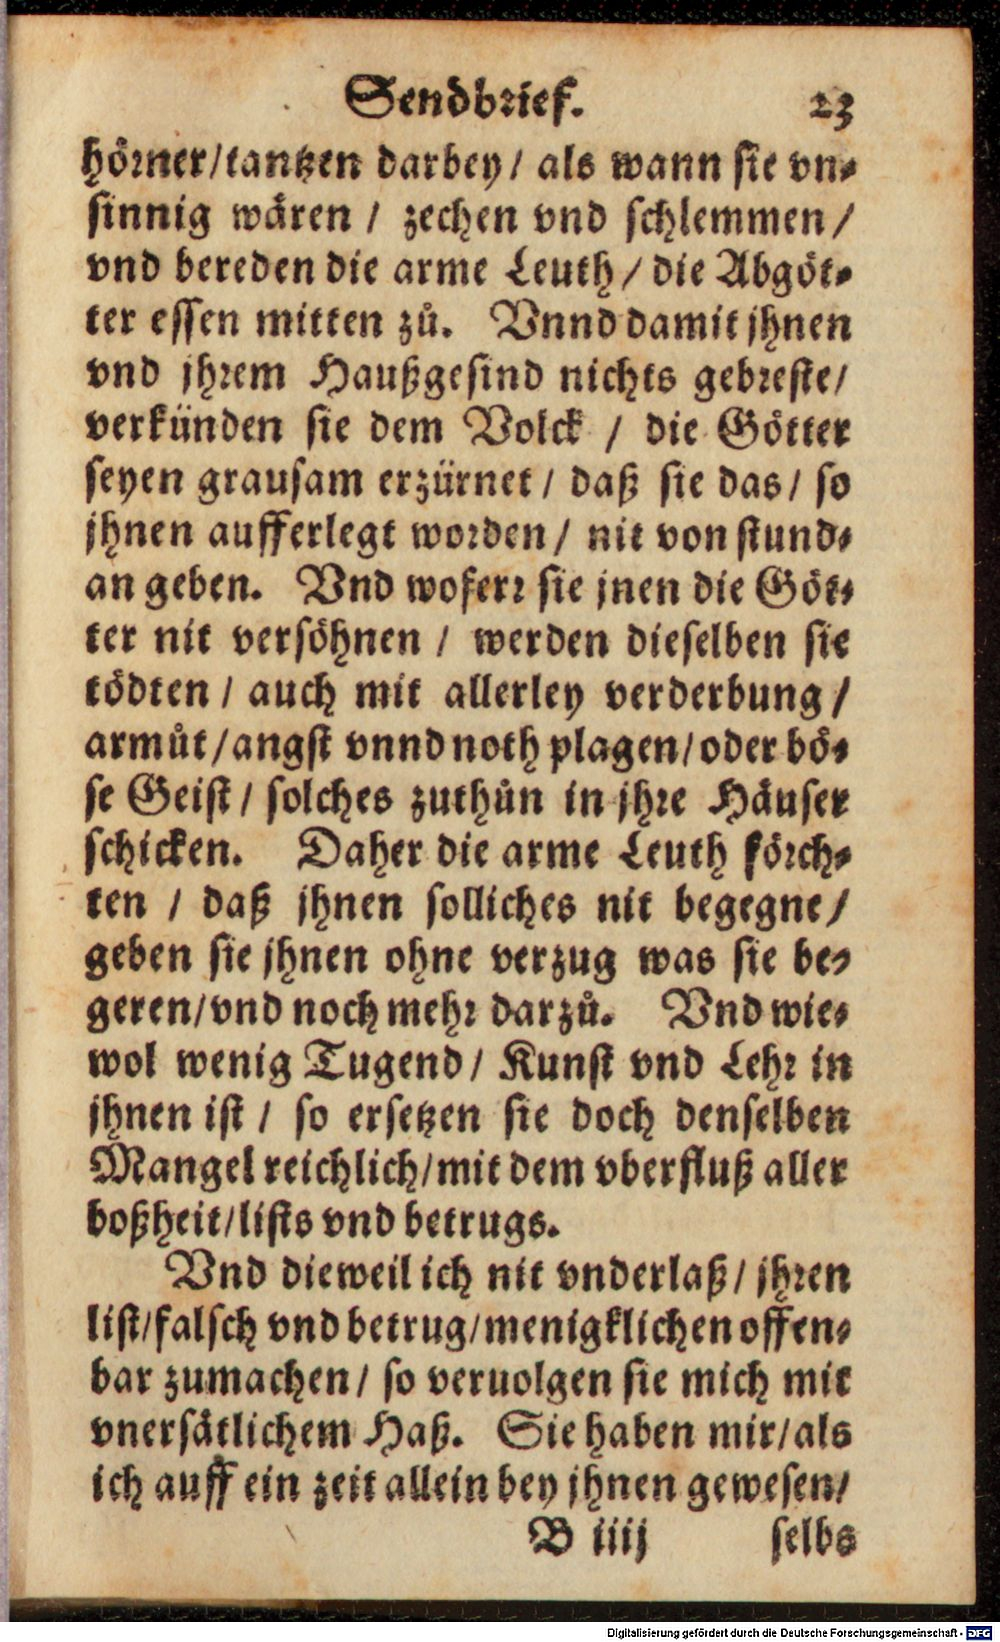 Sendbrief. 23
hörner/tantzen darbey/ als wann sie vn-
sinnig wären / zechen vnd schlemmen /
vnd bereden die arme Leuth / die Abgöt-
ter essen mitten zů. Vnnd damit jhnen
vnd jhrem Haußgesind nichts gebreste/
verkünden sie dem Volck / die Götter
seyen grausam erzürnet / daß sie das / so
jhnen aufferlegt worden / nit von stund-
an geben. Vnd woferr sie jnen die Göt-
ter nit versöhnen / werden dieselben sie
tödten / auch mit allerley verderbung /
armůt/angst vnnd noth plagen/oder bö-
se Geist / solches zuthůn in jhre Häuser
schicken. Daher die arme Leuth förch-
ten / daß jhnen solliches nit begegne /
geben sie jhnen ohne verzug was sie be-
geren/vnd noch mehr darzů. Vnd wie-
wol wenig Tugend / Kunst vnd Lehr in
jhnen ist / so ersetzen sie doch denselben
Mangel reichlich/mit dem vberfluß aller
boßheit/lists vnd betrugs.
Vnd dieweil ich nit vnderlaß / jhren
list/falsch vnd betrug/menigklichen offen-
bar zumachen / so veruolgen sie mich mit
vnersätlichem Haß. Sie haben mir/als
ich auff ein zeit allein bey jhnen gewesen/
B iiij selbs
Digitalisierung gefördert durch die Deutsche Forschungsgemeinschaft - DFG